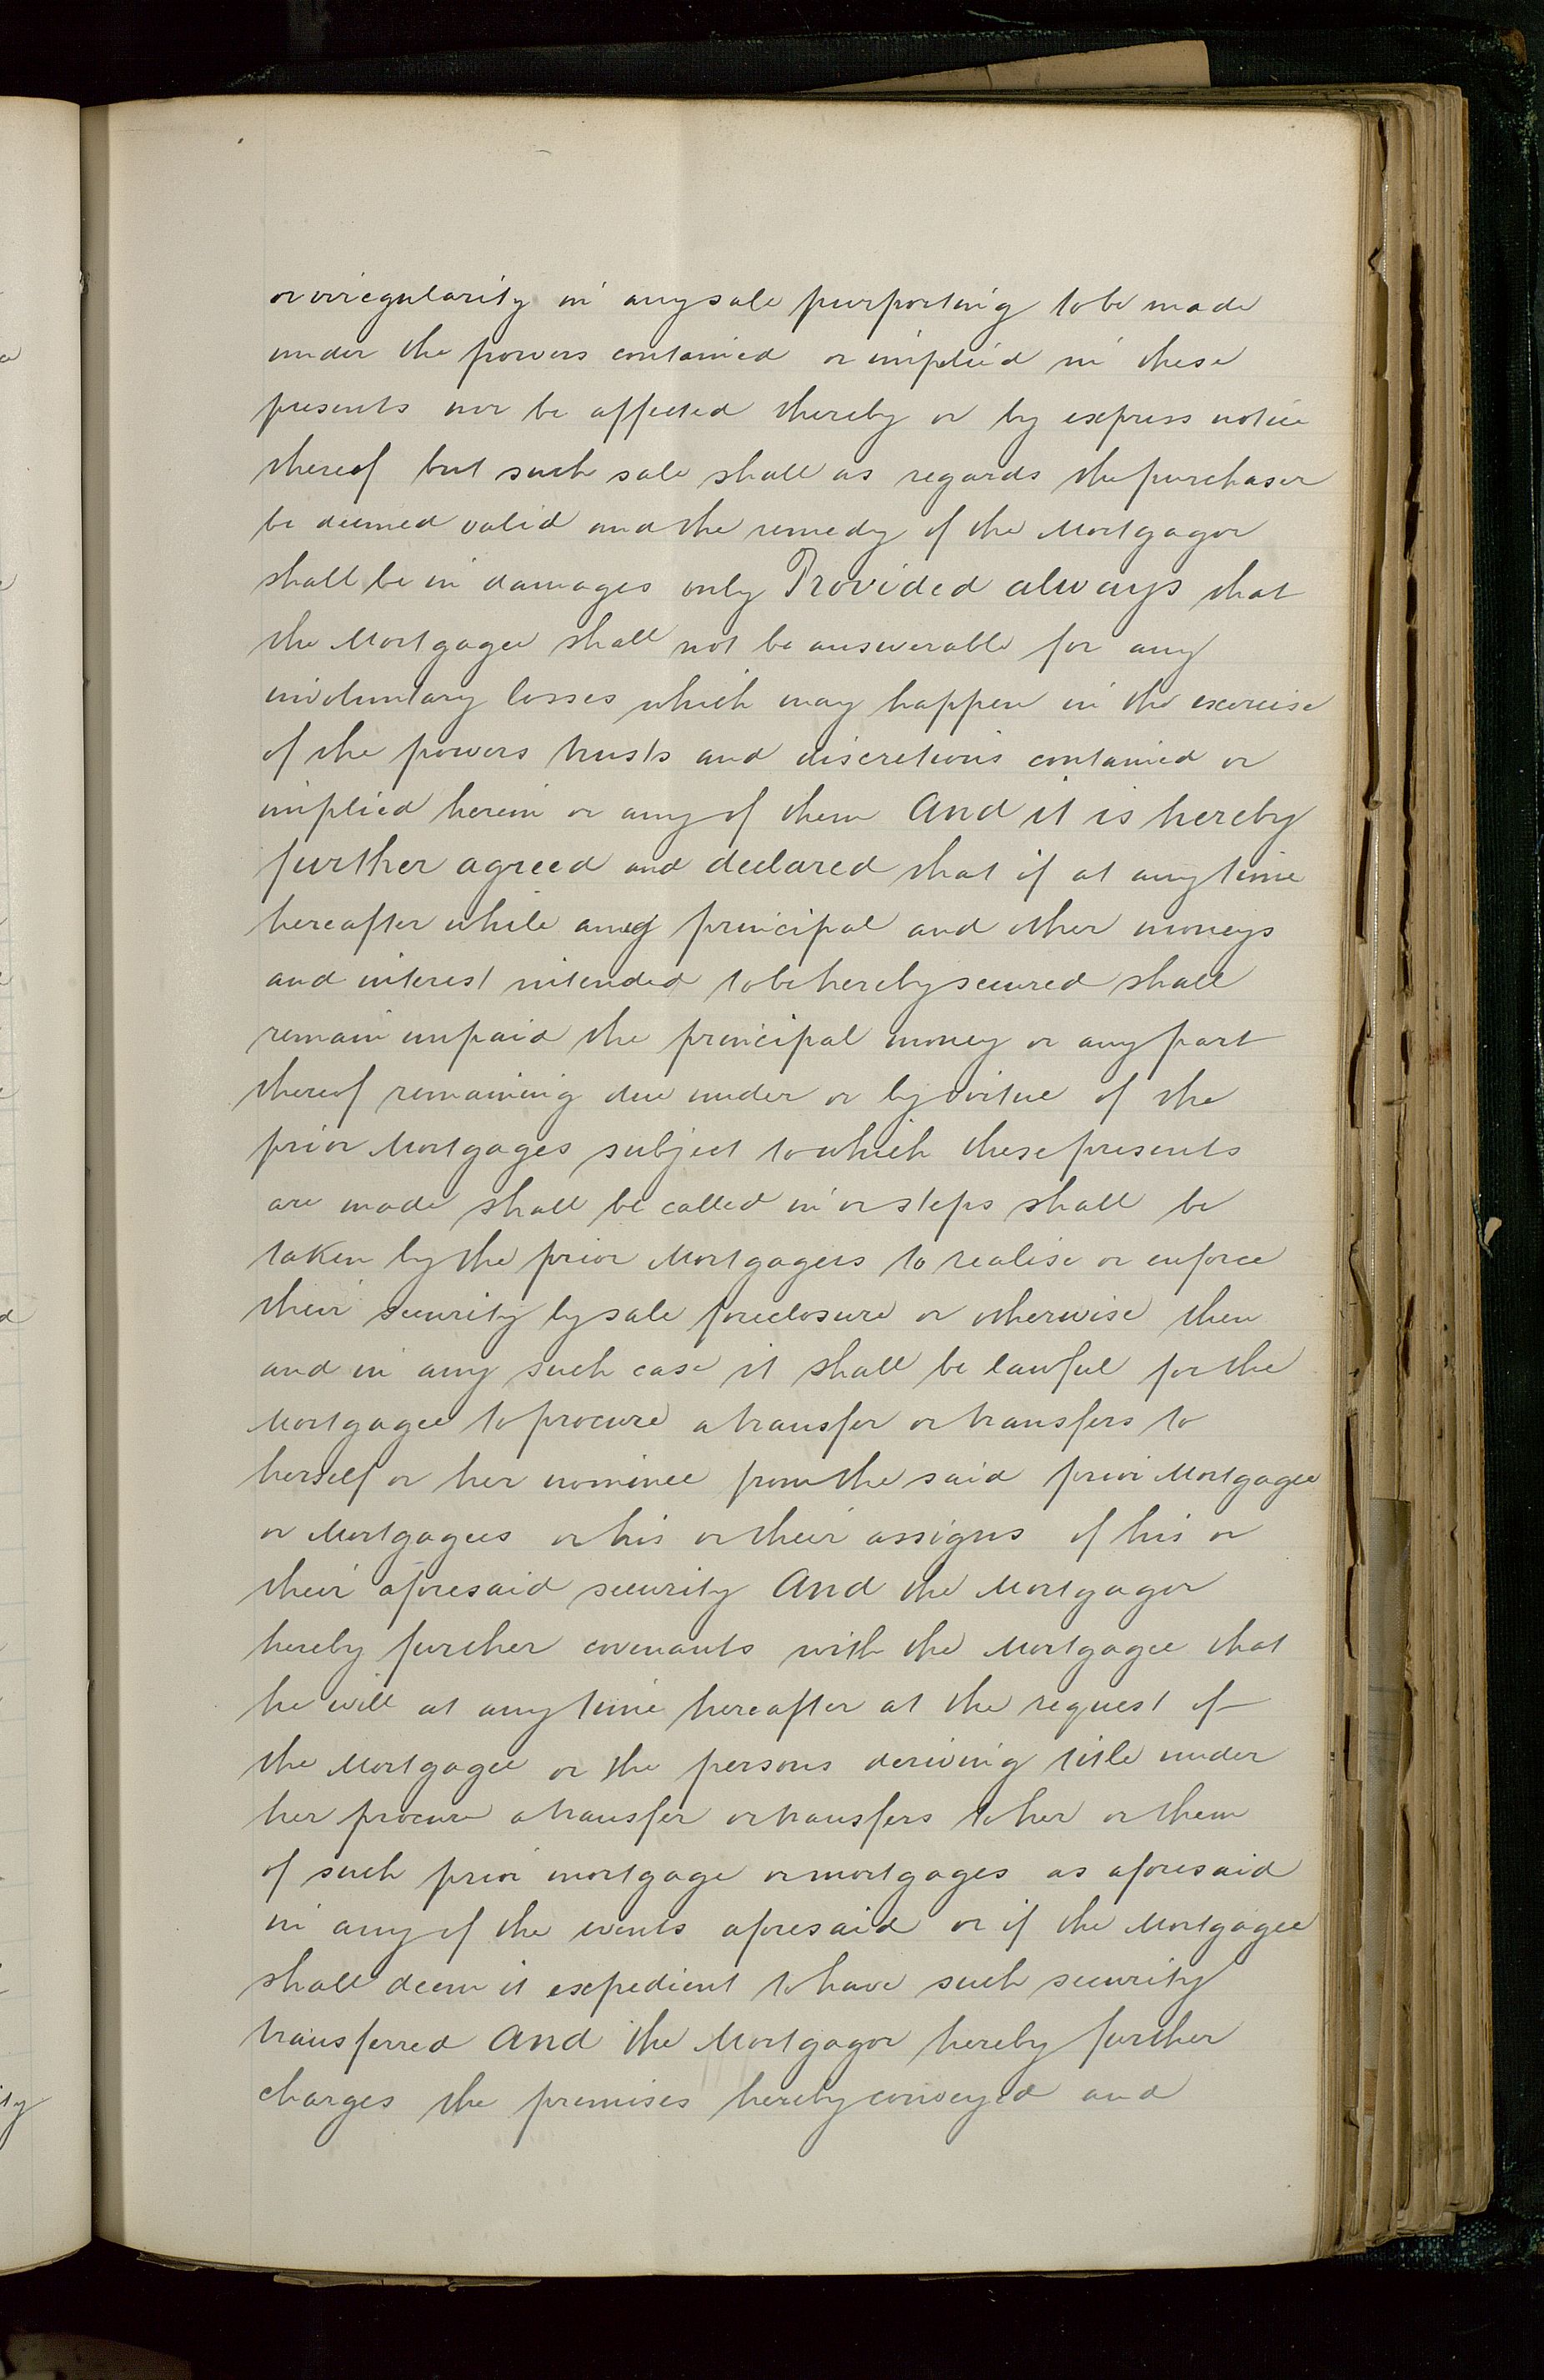 or irregularity in any sale purporting to be made
under the powers contained or implied in these
presents nor be affected thereby or by express notice
thereof but such sale shall as regards the purchaser
be deemed valid and the remedy of the Mortgagor
shall be in damages only Provided always that
the Mortgagee shall not be answerable for any
involuntary losses which may happen in the exercise
of the powers trusts and discretions contained or
implied herein or any of them And it is hereby
further agreed and declared that if at any time
hereafter while any principal and other moneys
and interest intended to be hereby secured shall
remain unpaid the principal money or any part
thereof remaining due under or by virtue of the
prior Mortgages subject to which these presents
are made shall be called in or steps shall be
taken by the prior Mortgagees to realise or enforce
their security by sale foreclosure or otherwise then
and in any such case it shall be lawful for the
Mortgagee to procure a transfer or transfers to
herself or her nominee from the said prior Mortgagee
or Mortgagees or his or their assigns of his or
their aforesaid security And the Mortgagor
hereby further covenants with the Mortgagee that
he will at any time hereafter at the request of
the Mortgagee or the persons deriving title under
her procure a transfer or transfers to her or them
of such prior mortgage or mortgages as aforesaid
in any of the events aforesaid or if the Mortgagee
shall deem it expedient to have such security
transferred And the Mortgagor hereby further
charges the premises hereby conveyed and